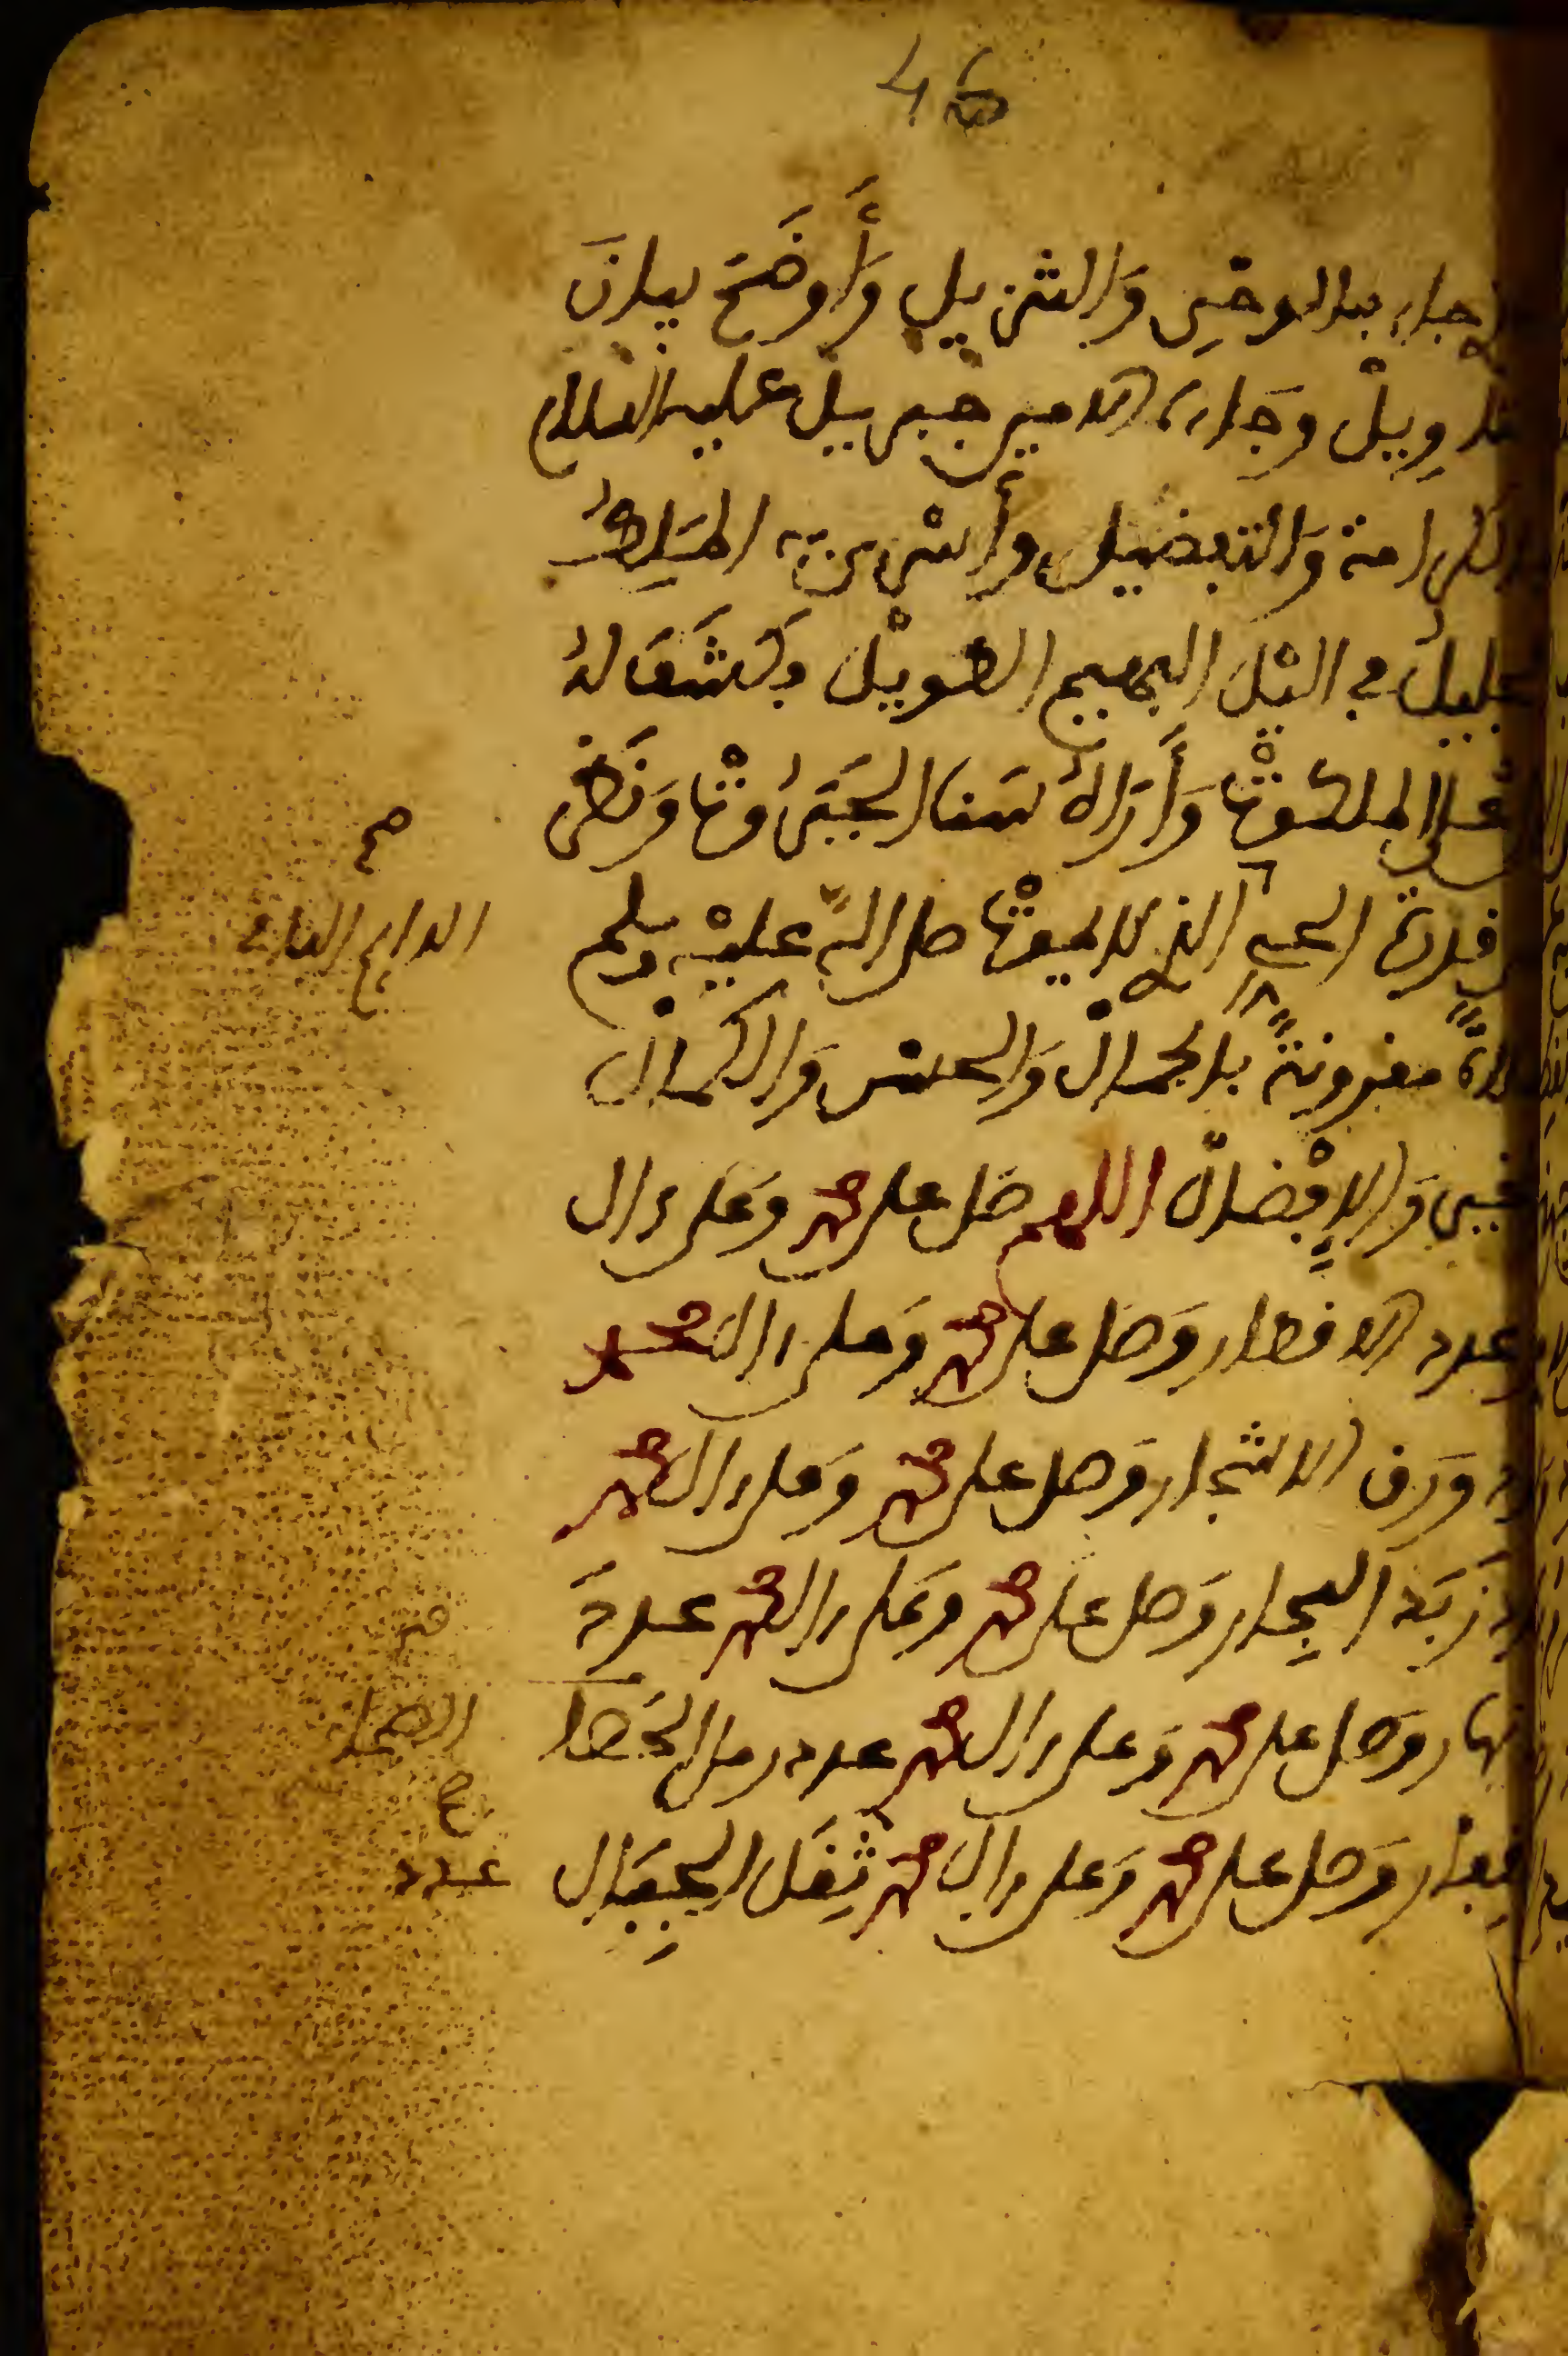 46
جاء بالوحي والتنزيل وأوضح بيان
تاويل وجاءه الامين جبريل عليه السلام
الكرامة والتفضيل وأسرى به الملك
الجليل في اليل البهيم الطويل فكشف له
على الملكوت وأراه سنا الجبروت ونظر
قدرة الحي الذي لا يموت صلى الله عليه وسلم
صلاة مقرونة بالجمال والحسن والكمال
والخير والافضال اللهم صل على محمد وعلى ءال
عدد الاقطار وصل على محمد وعلى ءال محمد
ورق الاشجار وصل على محمد وعلى ءال محمد
زبد البحار وصل على محمد وعلى ءال محمد عدد
الانهار وصل على محمد وعلى ءال محمد عدد رمل الصحا
القفار وصل على محمد وعلى ءال محمد ثقل الجبال
صح
الدايم
عدد